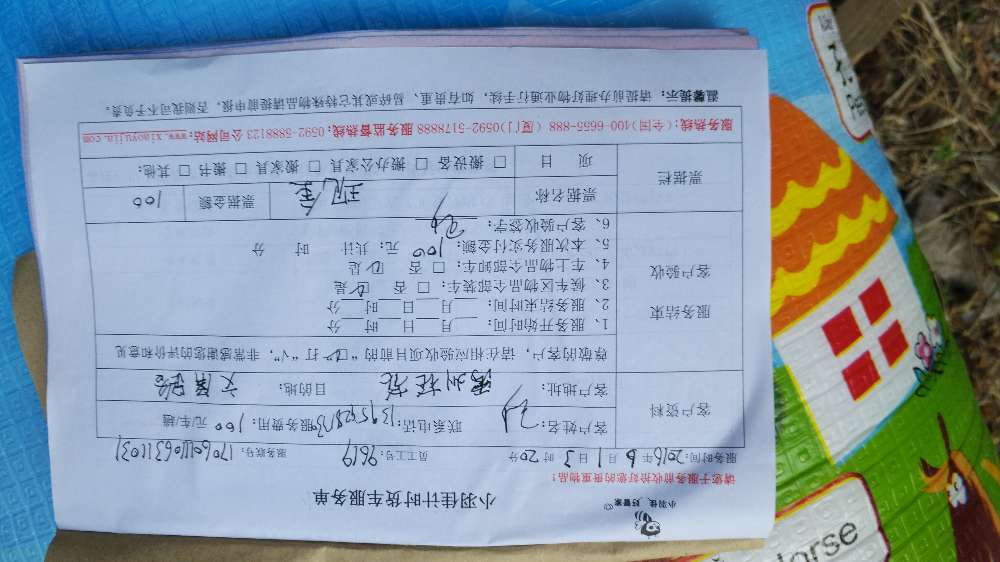 小羽佳 好管家
小羽佳计时货车服务单
请您于服务前收拾好您的贵重物品!
服务时间: 2016年6月1日3时20分 员工工号: 9619 服务联号:
客户资料
客户姓名: 联系电话: 服务费用: 100 元/车趟
客户地址: 目的地:
尊敬的客户,请在相应验收项目前的“□”打“√”,非常感谢您的评价和意见
服务结束
客户验收
1、服务开始时间: 月 日 时 分
2、服务结束时间: 月 日 时 分
3、候车区物品全部装车: □ 否 是
4、车上物品全部卸车: □ 否 是
5、本次服务实付金额: 100 元; 共计 时 分
6、客户验收签字:
票据栏
票据名称 现金 票据金额 100
项 目 □ 搬设备 □ 搬办公家具 □ 搬家具 □ 搬书 □ 其他:
服务热线:(全国)400-6655-888 (厦门)0592-5178888 服务监督热线:0592-5888123 公司网站:www.xiaoyujia.com
温馨提示: 请提前办理好物业通行手续,如有贵重、易碎或其它特殊物品请提前申报,否则我司不予负责。
orse